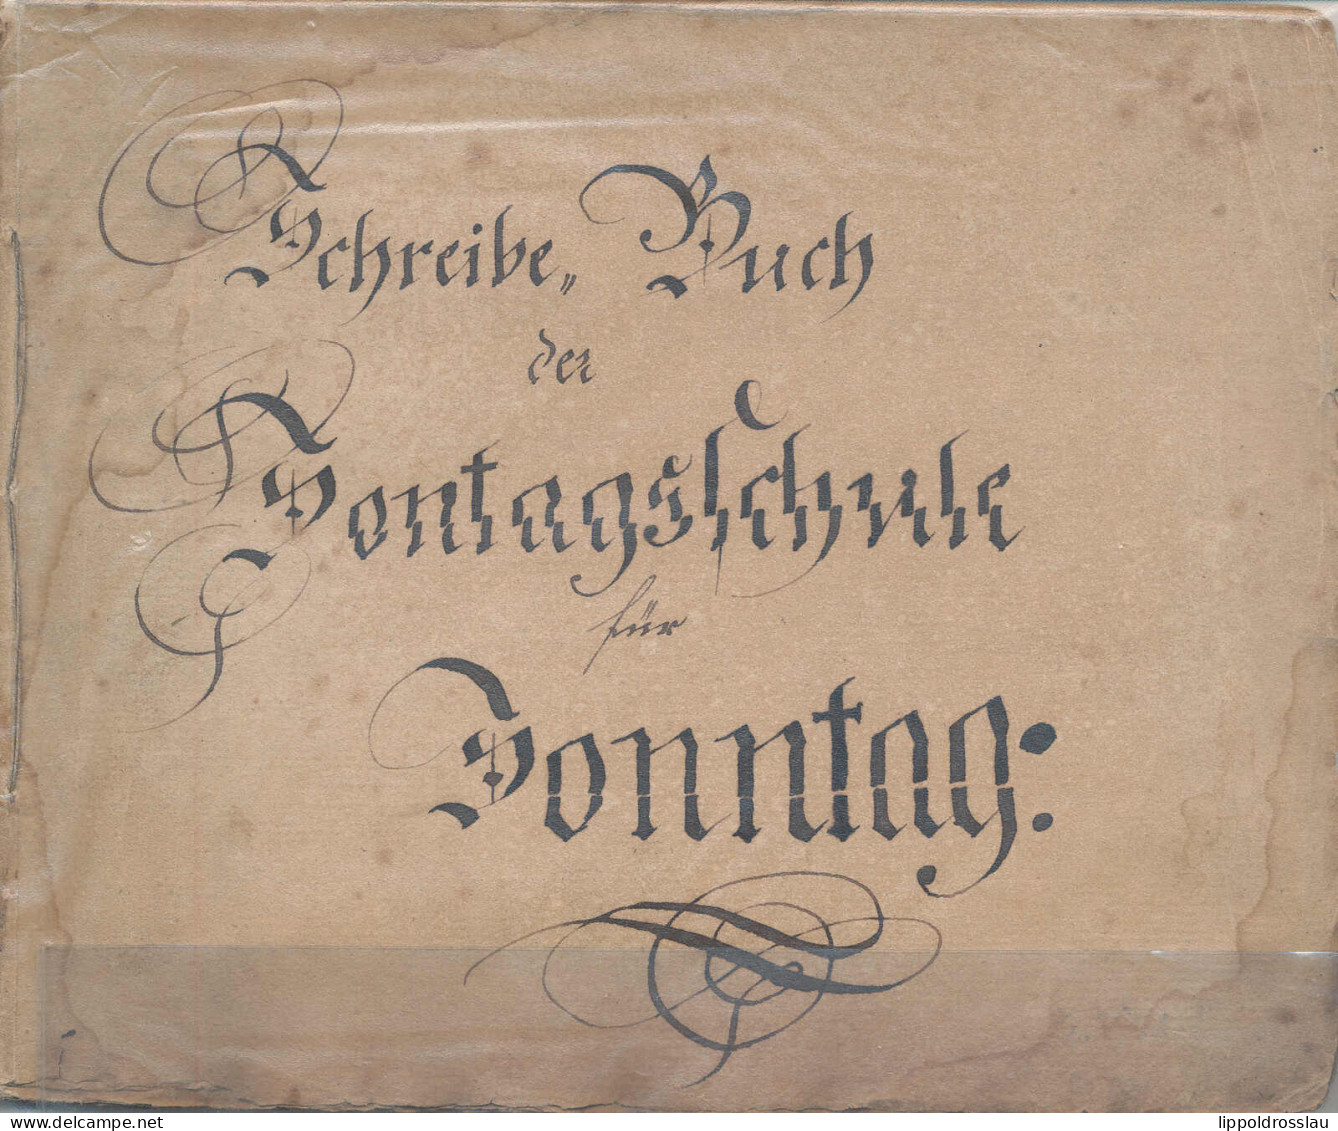 Schreibe„ Buch
der
Sontagsschule
für
Sonntag:
www.delcampe.net
lippoldrosslau